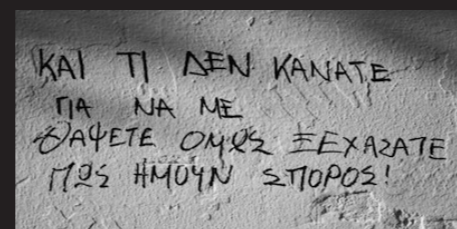 ΚΑΙ ΤΙ ΔΕΝ ΚΑΝΑΤΕ
ΓΙΑ ΝΑ ΜΕ
ΘΑΨΕΤΕ ΟΜΩΣ ΞΕΧΑΣΑΤΕ
ΠΩΣ ΗΜΟΥΝ ΣΠΟΡΟΣ!